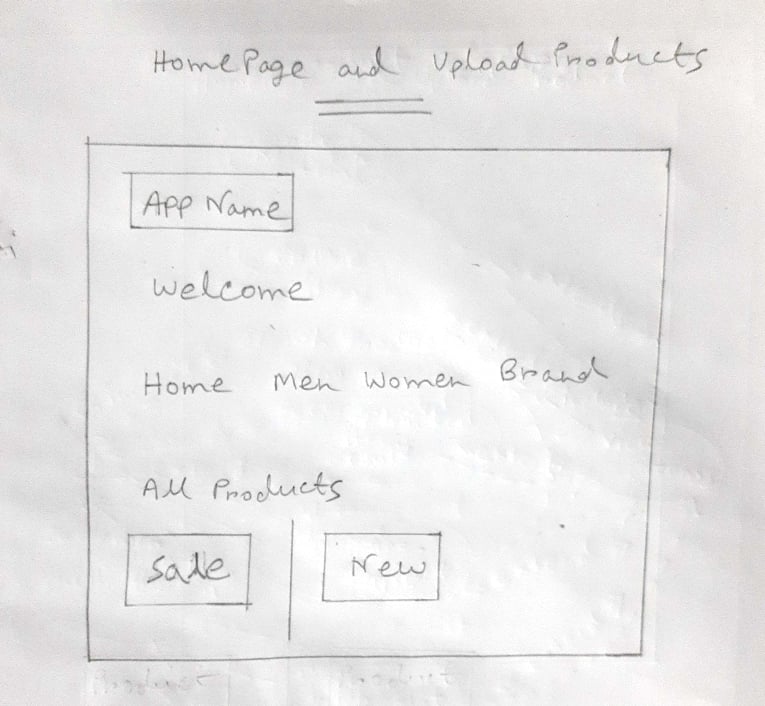 HomePage and Upload Products
App Name
Welcome
Home Men Women Brand
All Products
Sale New
Product Product